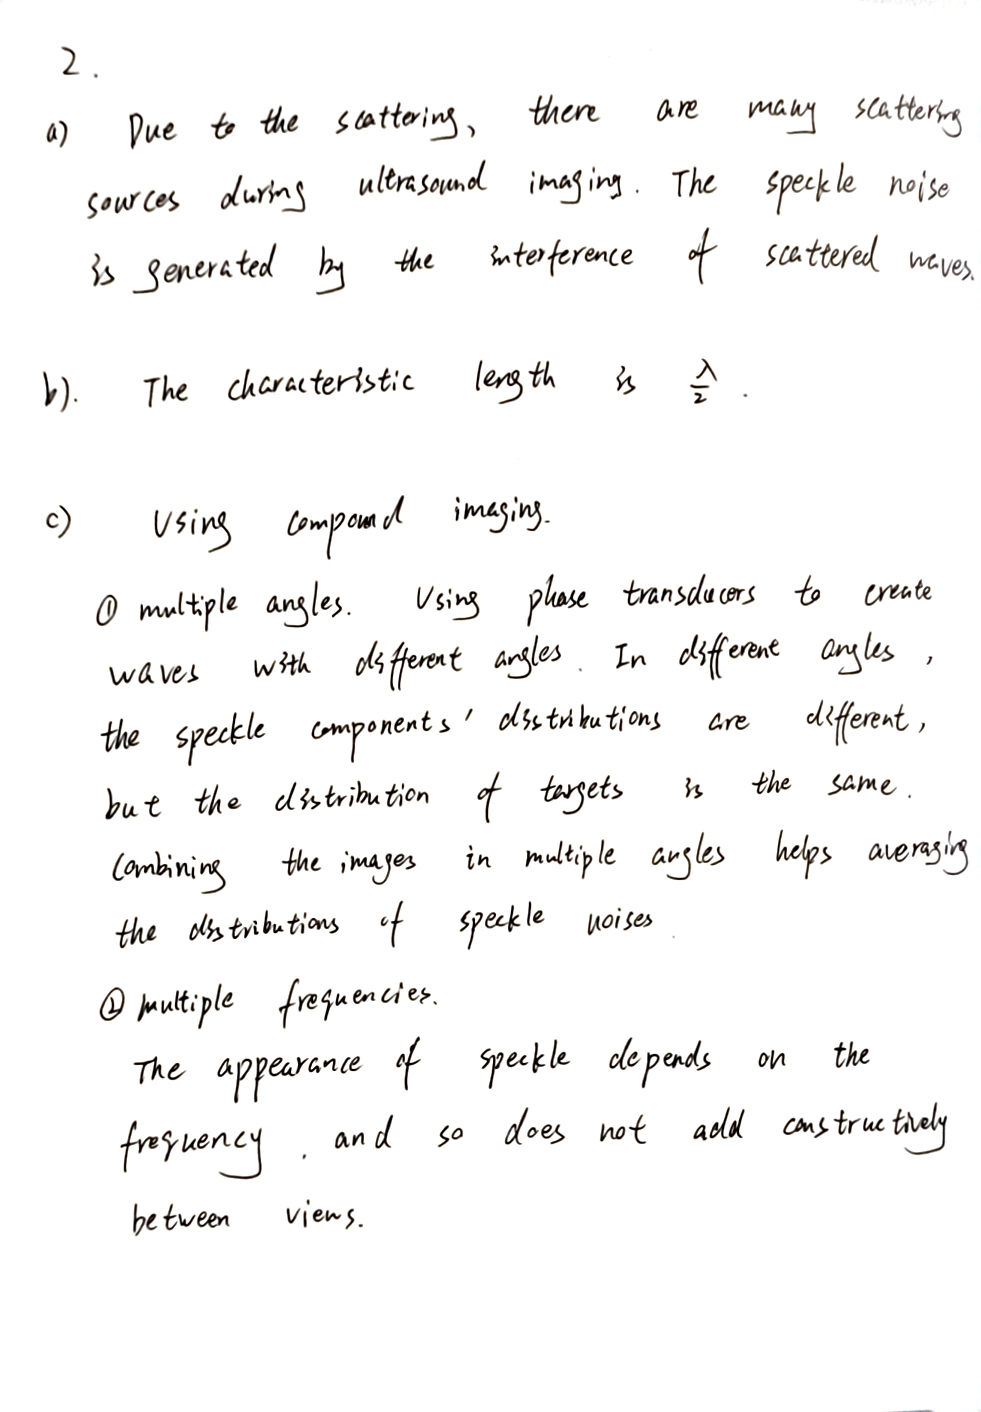 2.
a) Due to the scattering, there are many scattering
sources during ultrasound imaging. The speckle noise
is generated by the interference of scattered waves.
b). The characteristic length is λ/2.
c) Using compound imaging.
① multiple angles. Using phase transducers to create
waves with different angles. In different angles,
the speckle components' distributions are different,
but the distribution of targets is the same.
Combining the images in multiple angles helps averaging
the distributions of speckle noises.
② multiple frequencies.
The appearance of speckle depends on the
frequency, and so does not add constructively
between views.